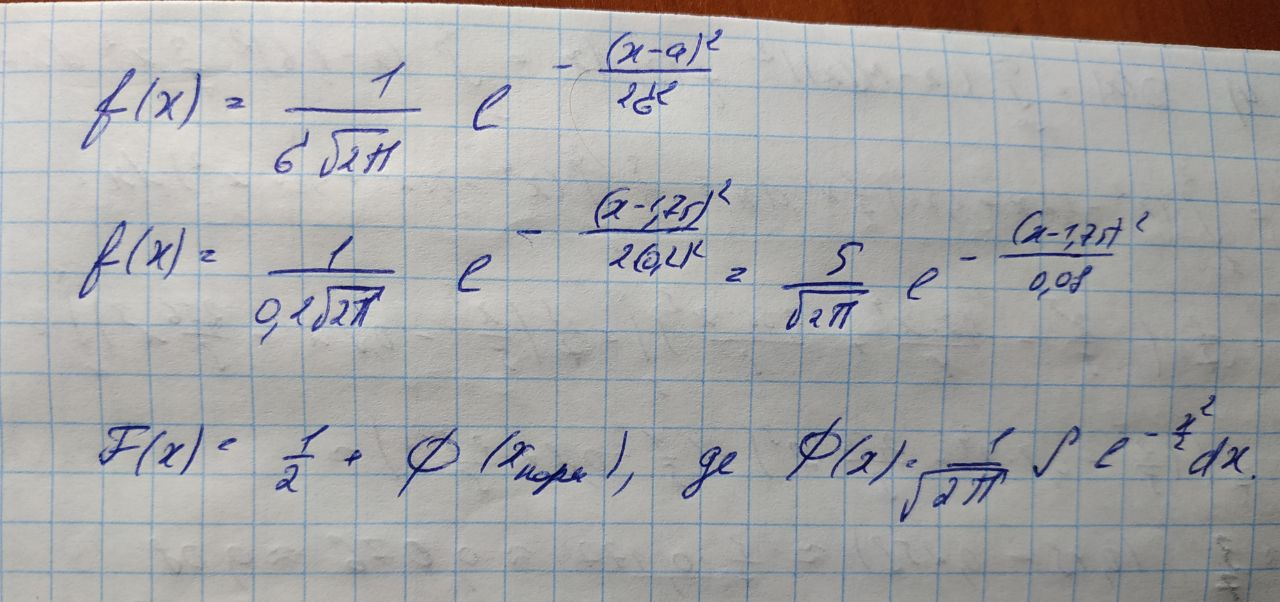 f(x) = 1/(σ√(2π)) e^(-(x-a)²/(2σ²))
f(x) = 1/(0,2√(2π)) e^(-(x-1,75)²/(2(0,2)²)) = 5/√(2π) e^(-(x-1,75)²/0,08)
F(x) = 1/2 + Φ(x норм), де Φ(x) = 1/√(2π) ∫ e^(-x²/2) dx.